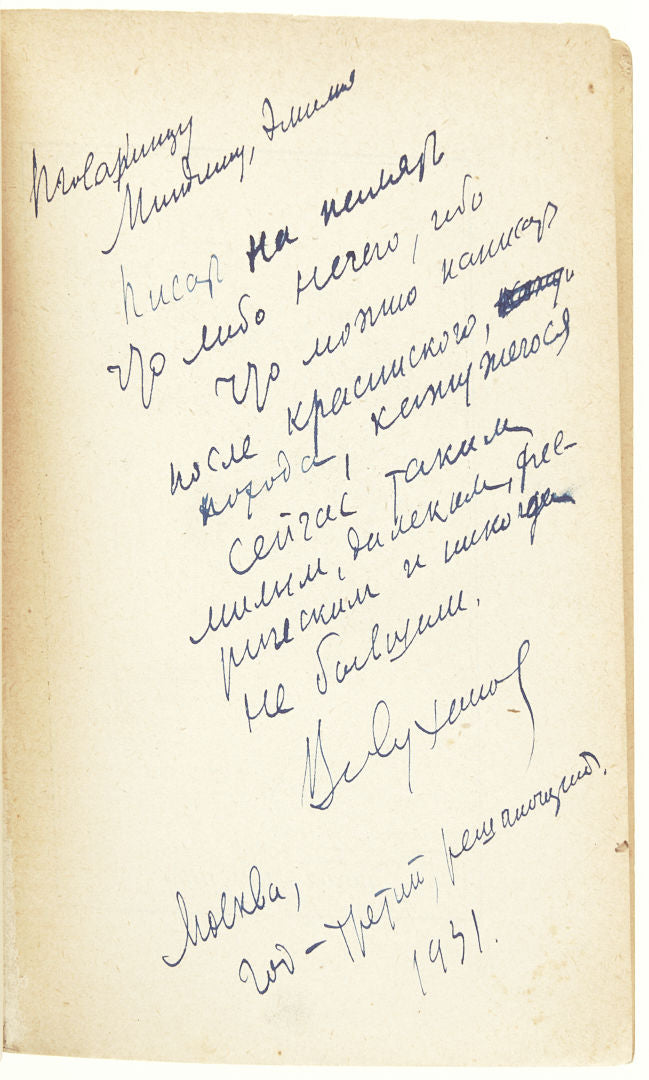 Товарищу
Миндлину, Эмилия
Писать на память
что либо нечего, ибо
что можно написать
после красинского,
похода, кажущегося
сейчас таким
милым, далеким, фее-
рическим и никогда
не бывшим.
Москва,
год - третий, решающий.
1931.